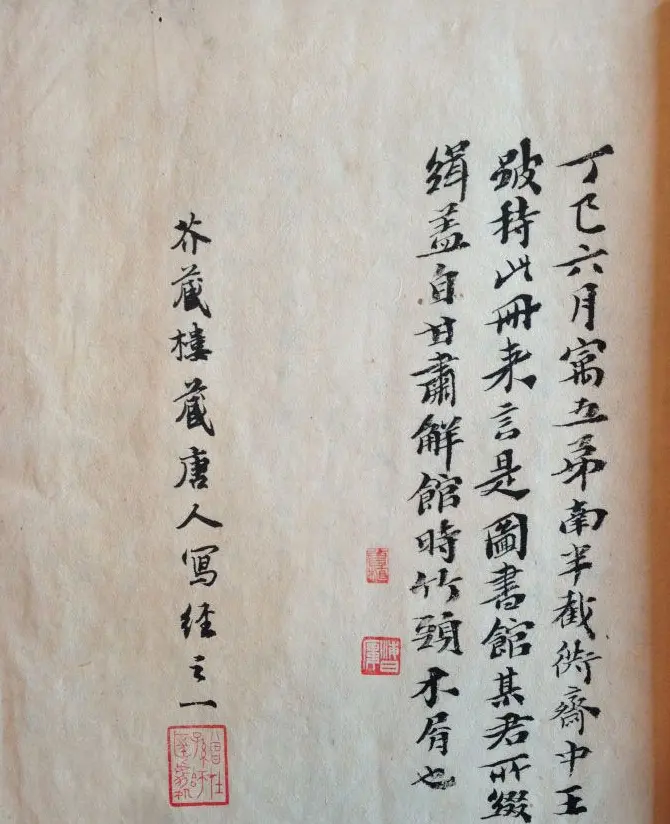 丁巳六月寓五弟南半截衖齋中王
跛持此冊来言是圖書館某君所綴
緝蓋自甘肅解館時竹頭木屑也
芥藏樓藏唐人寫經之一